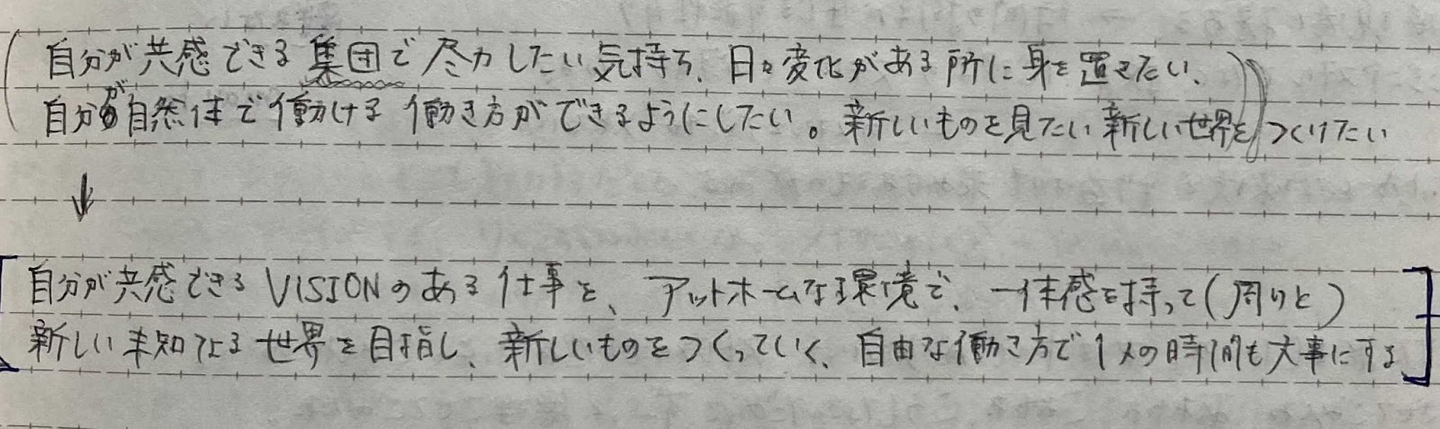 (自分が共感できる集団で尽力したい気持ち、日々変化がある所に身を置きたい、
自分が自然体で働ける働き方ができるようにしたい。新しいものを見たい新しい世界を)つくりたい
↓
[自分が共感できるVISIONのある仕事を、アットホームな環境で、一体感を持って(周りと)
新しい未知なる世界を目指し、新しいものをつくっていく、自由な働き方で1人の時間も大事にする]